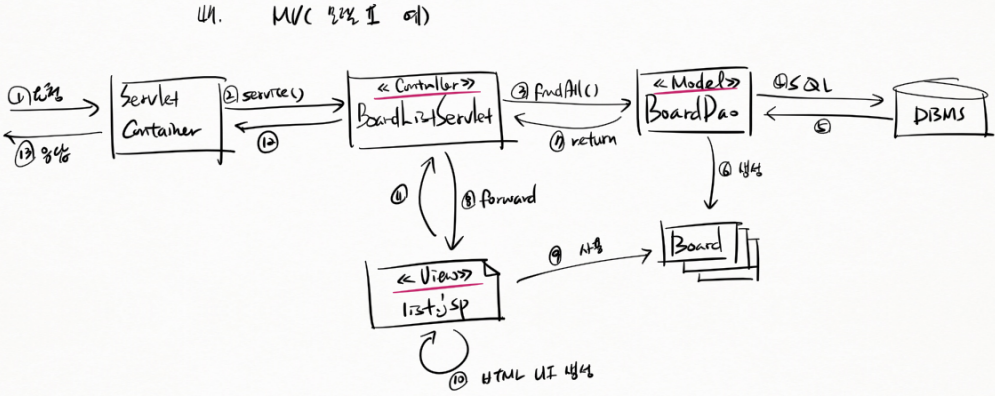 MVC 모델 II 예)
① 요청
⑬ 응답
Servlet
Container
② service()
⑫
<<Controller>>
BoardListServlet
③ findAll()
⑦ return
<<Model>>
BoardDao
④ SQL
⑤
DBMS
⑥ 생성
Board
⑪
⑧ forward
⑨ 사용
<<View>>
list.jsp
⑩ HTML UI 생성